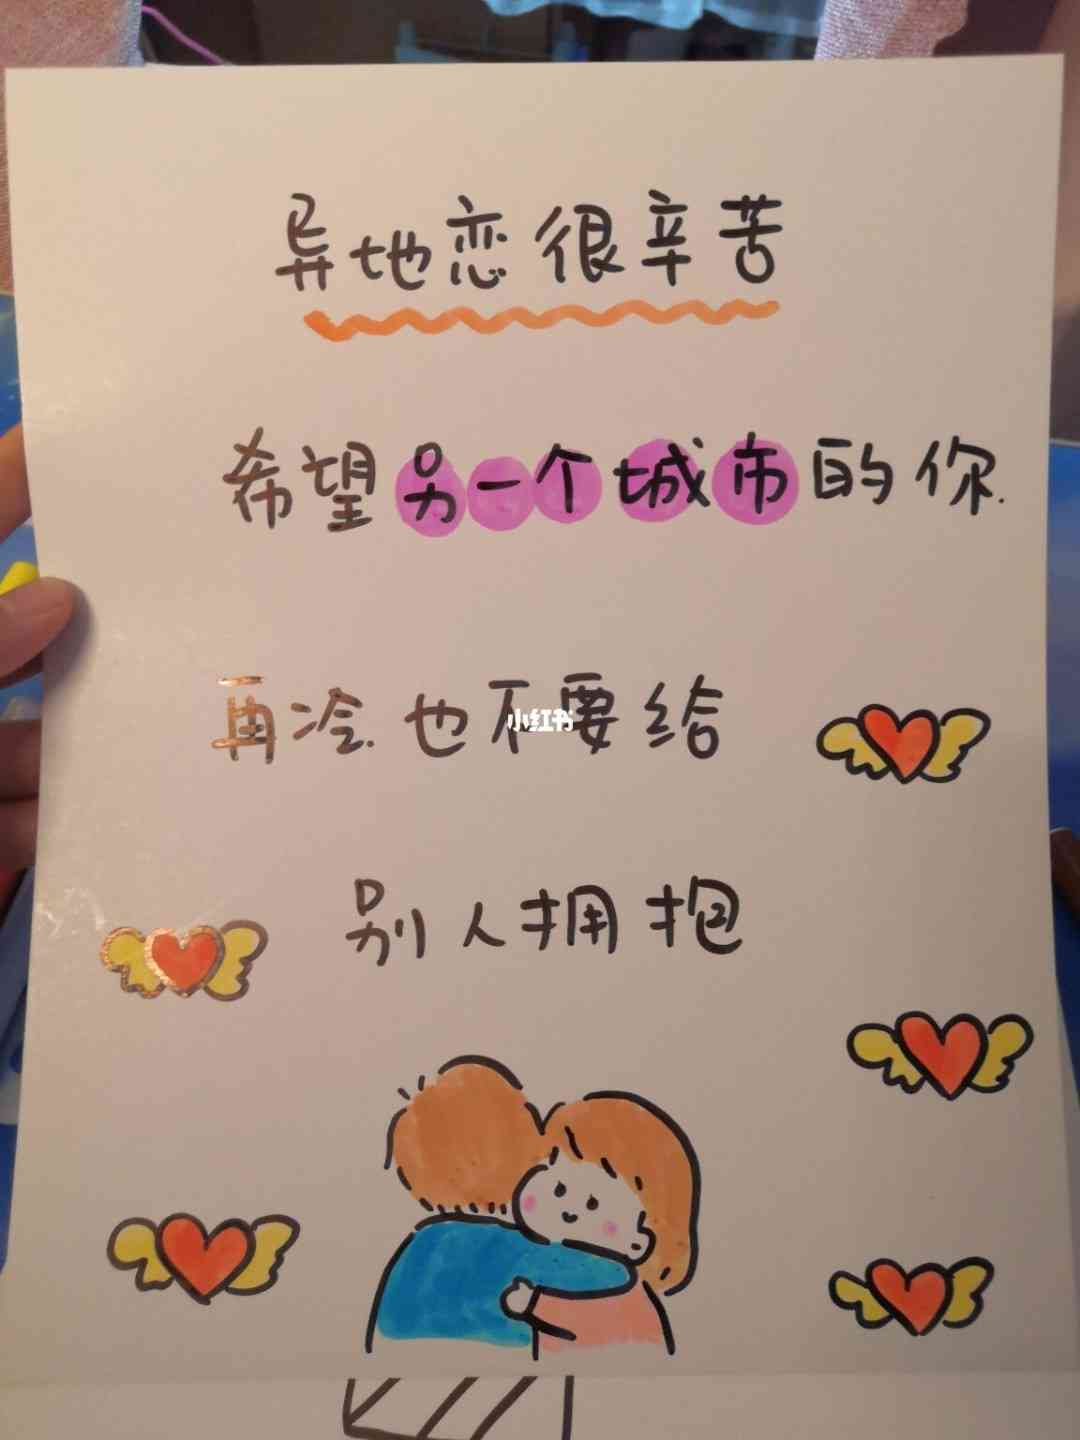 异地恋很辛苦
希望另一个城市的你
再冷也不要给
小红书
别人拥抱